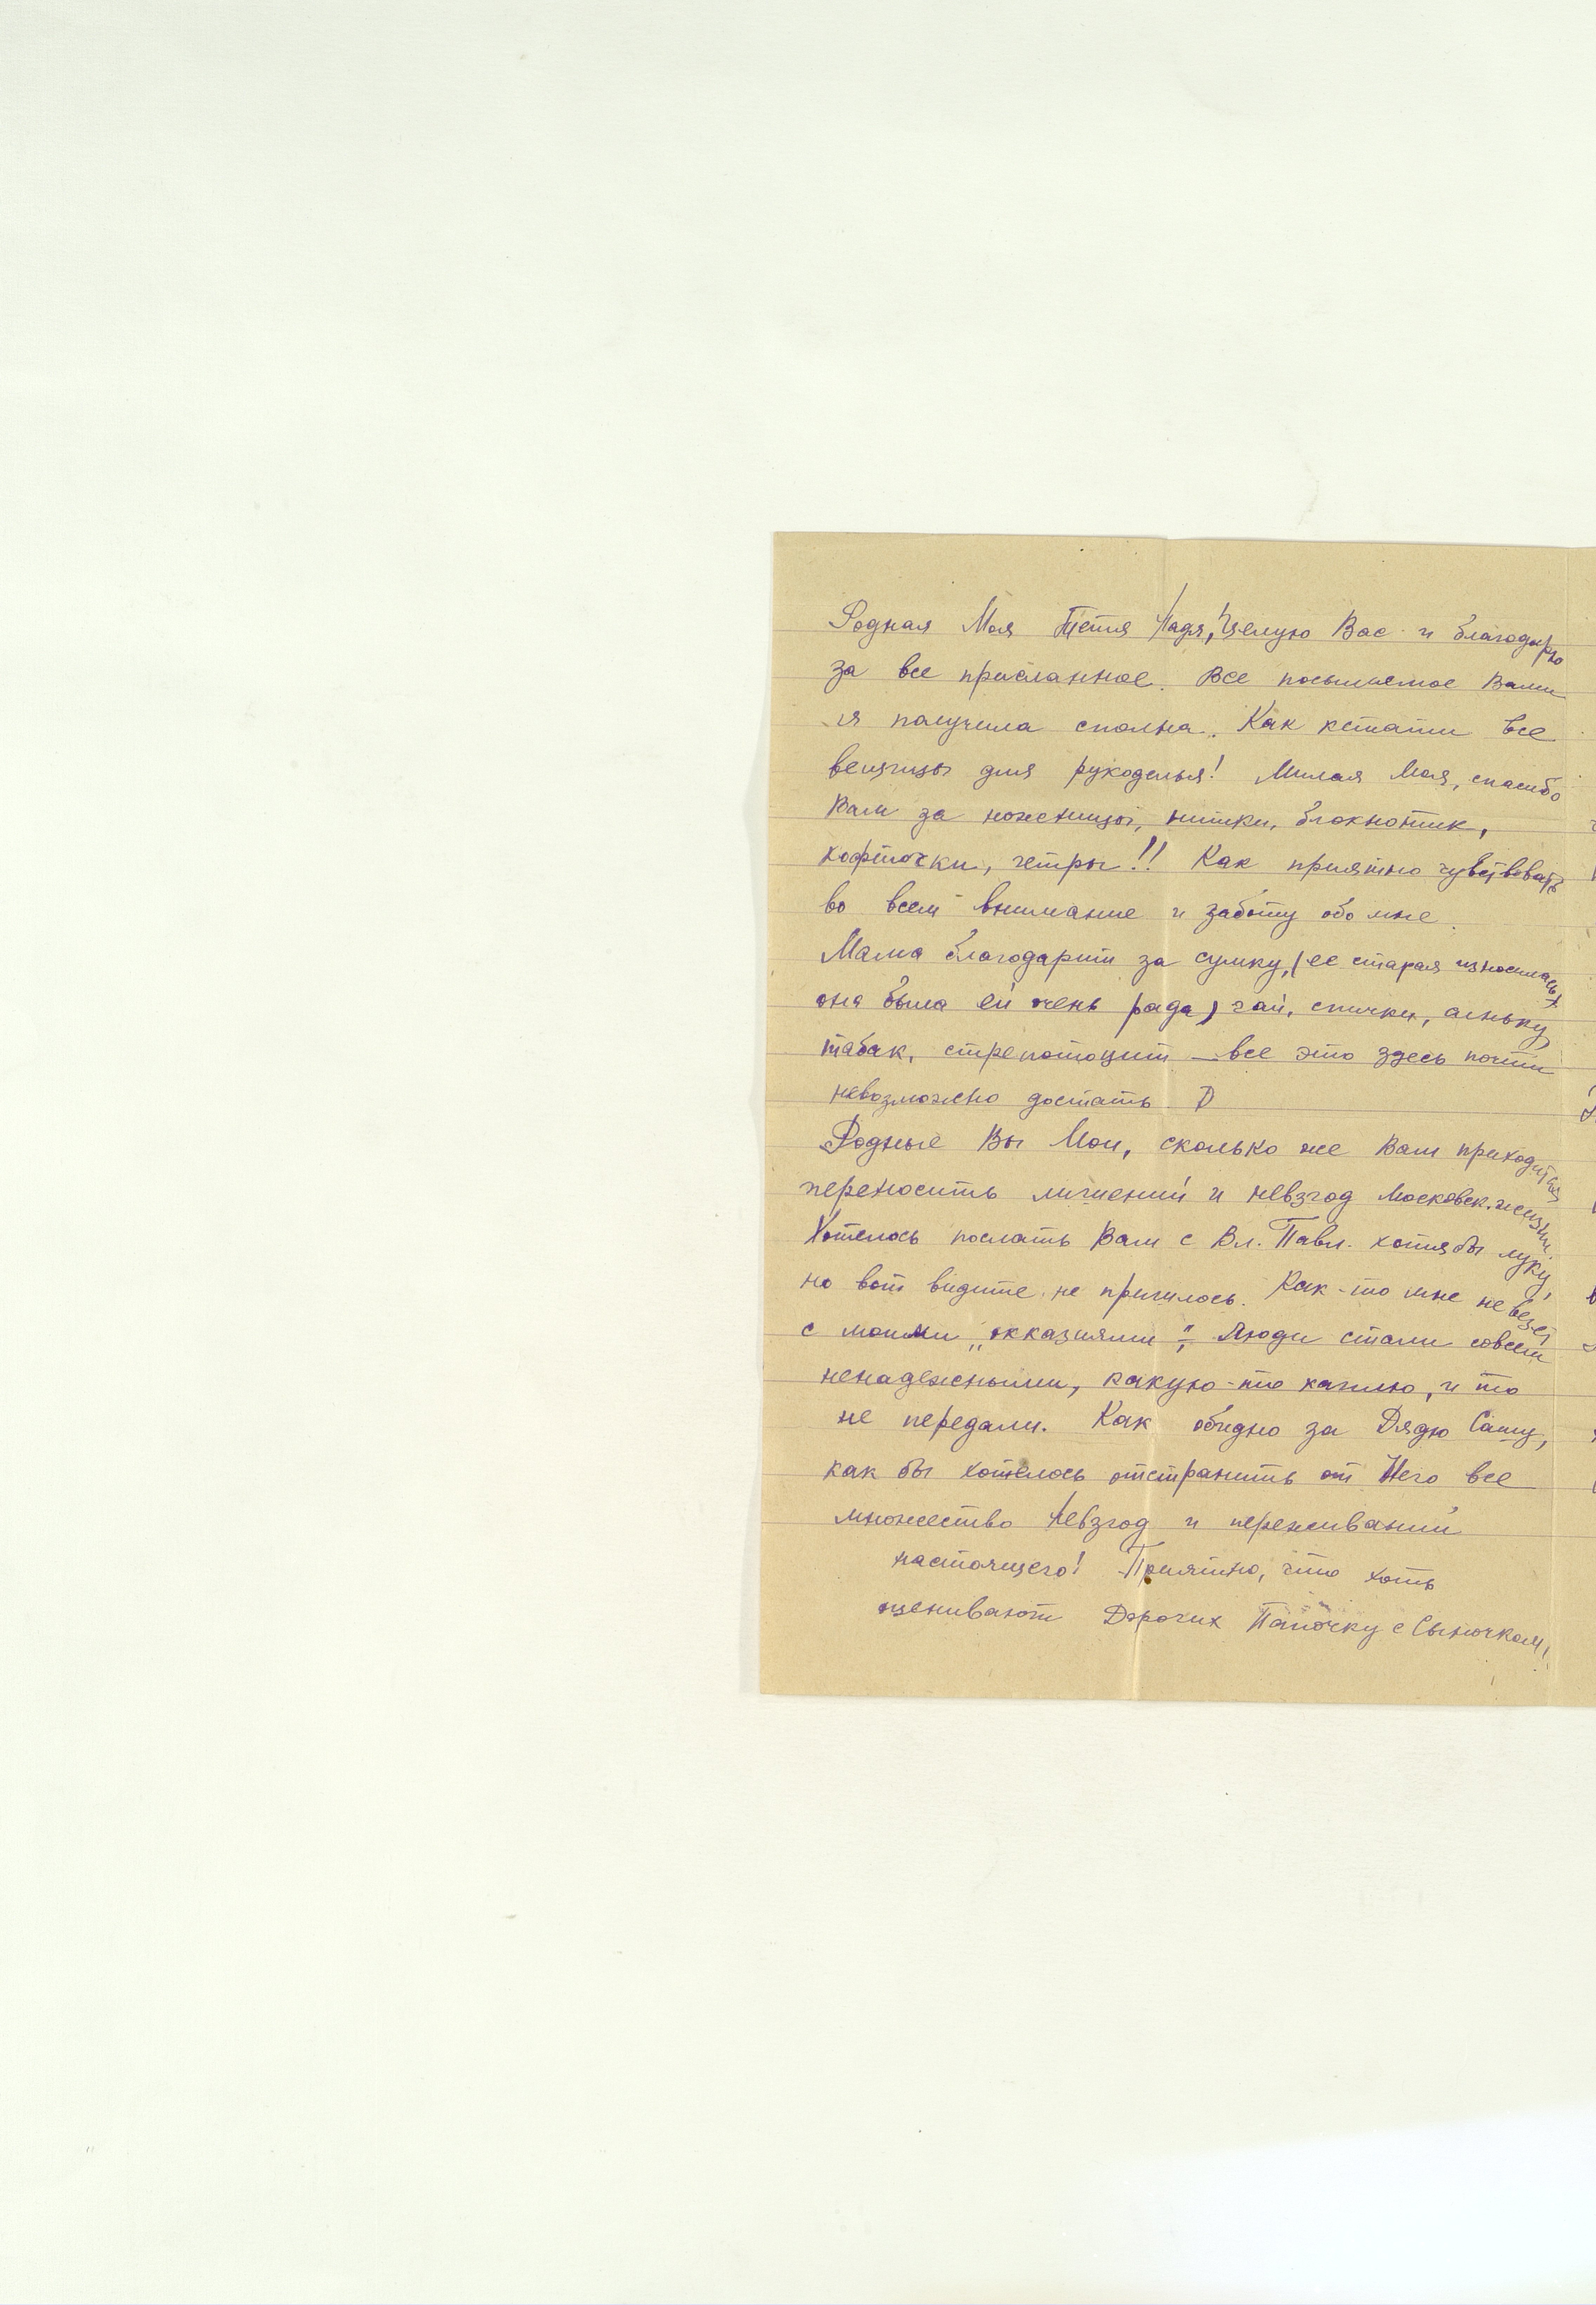 Родная Моя Тетя Надя, Целую Вас и благодарю
за все присланное. Все посылаемое Вами
я получила сполна. Как кстати все
вещицы для рукоделья! Милая Моя, спасибо
Вам за ножницы, нитки, блокнотик,
кофточки, гетры!! Как приятно чувствовать
во всем внимание и заботу обо мне.
Мама благодарит за сумку, (ее старая износилась,
она была ей очень рада) чай, спички,
табак, стрептоцит – все это здесь почти
невозможно достать.
Родные Вы Мои, сколько же Вам приходится
переносить лишений и невзгод Московск. жизни.
Хотелось послать Вам с Вл. Павл. хотя бы луку,
но вот видите не пришлось. Как-то мне не везет
с моими „окказиями". Люди стали совсем
ненадежными, какую-то каплю, и то
не передали. Как обидно за Дядю Сашу,
как бы хотелось отстранить от Него все
множество невзгод и переживаний
настоящего! Приятно, что хоть
оценивают Дорогих Папочку с Сыночком,